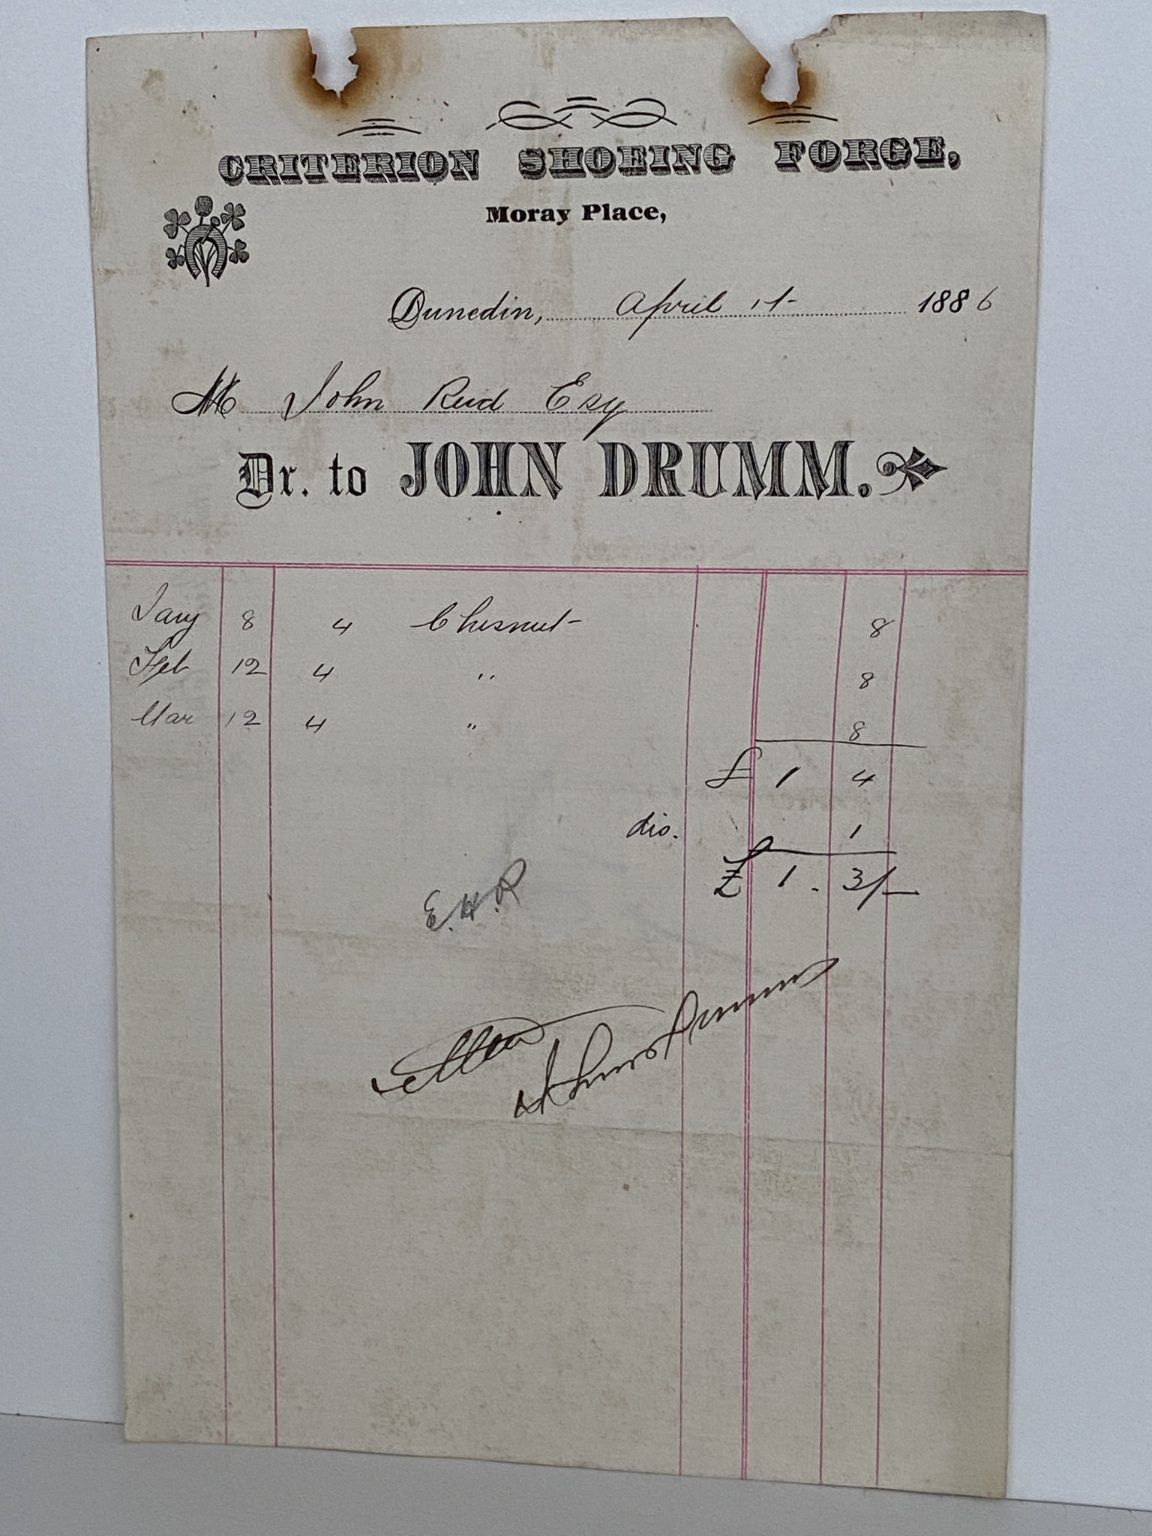 CRITERION SHOEING FORGE,
Moray Place,
Dunedin, April 1st 1886
M John Reid Esq
Dr. to JOHN DRUMM.
Jany 8 4 Chesnut 8
Feb 12 4 " 8
Mar 12 4 " 8
£ 1 4
dis. 1
£ 1. 3/-
E.H.P.
John Drumm